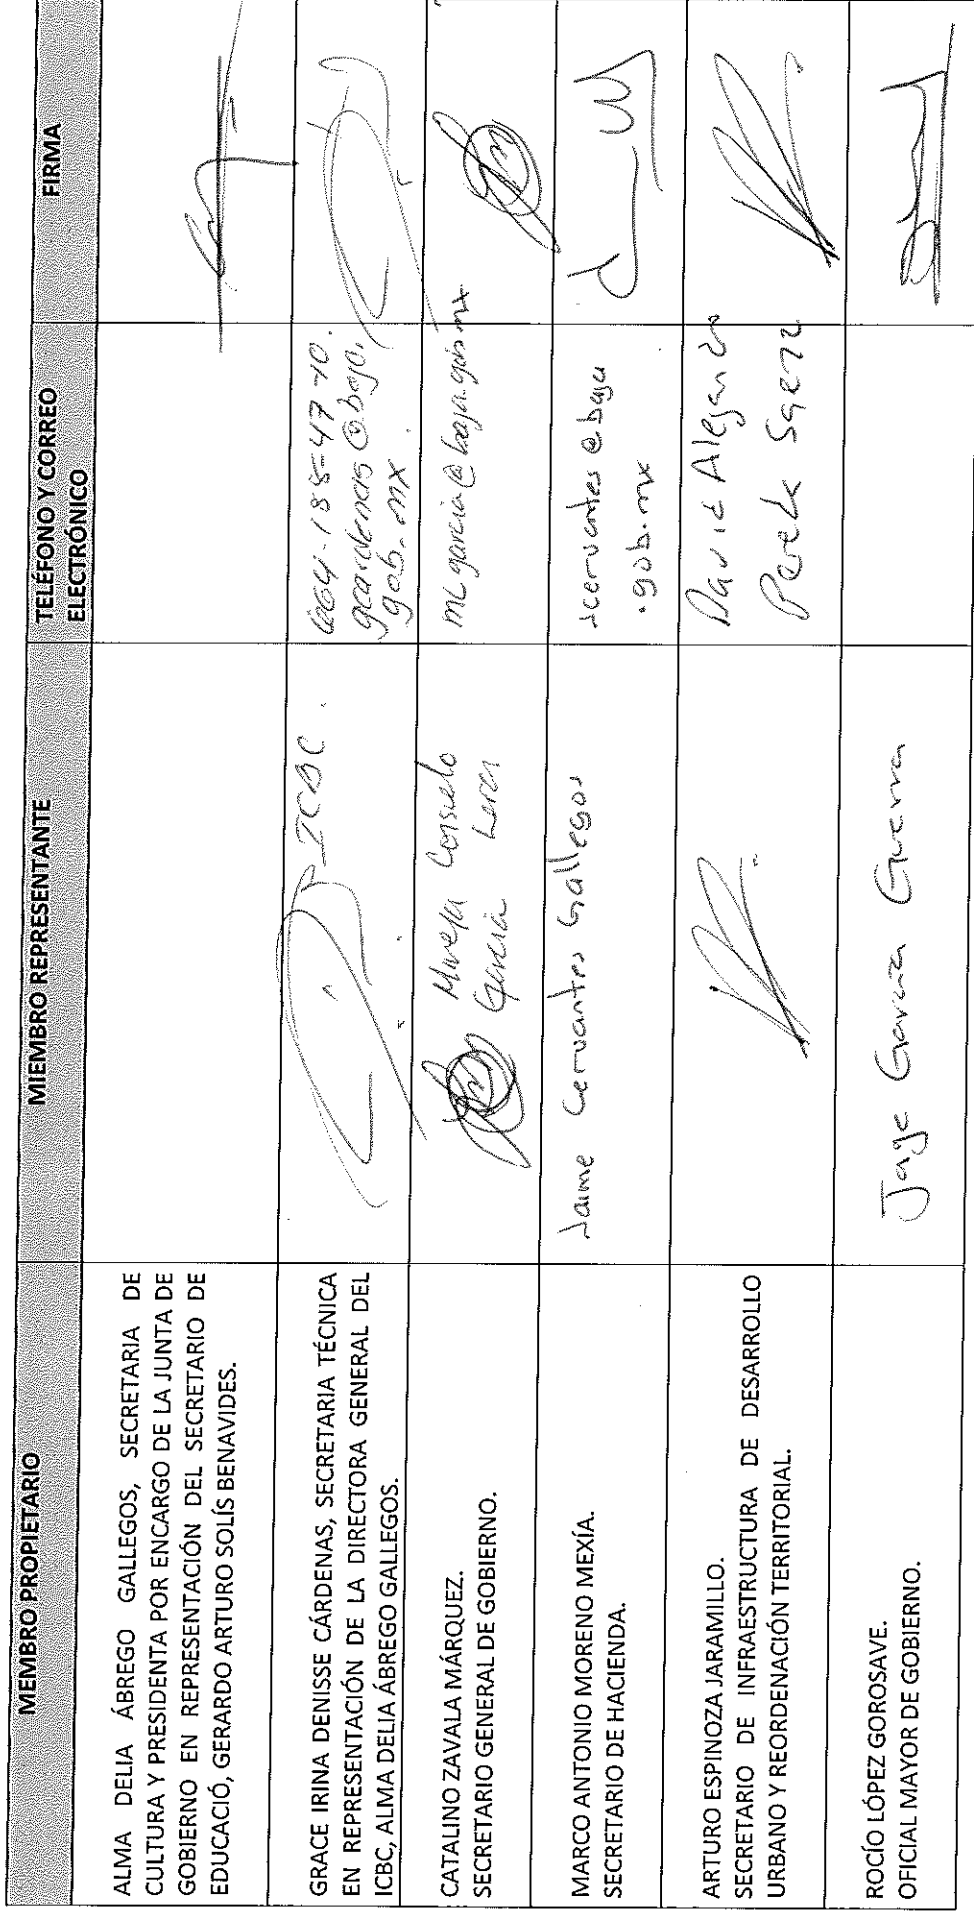 MEMBRO PROPIETARIO
MIEMBRO REPRESENTANTE
TELÉFONO Y CORREO
ELECTRÓNICO
FIRMA
ALMA DELIA ÁBREGO GALLEGOS, SECRETARIA DE
CULTURA Y PRESIDENTA POR ENCARGO DE LA JUNTA DE
GOBIERNO EN REPRESENTACIÓN DEL SECRETARIO DE
EDUCACIÓ, GERARDO ARTURO SOLÍS BENAVIDES.
GRACE IRINA DENISSE CÁRDENAS, SECRETARIA TÉCNICA
EN REPRESENTACIÓN DE LA DIRECTORA GENERAL DEL
ICBC, ALMA DELIA ÁBREGO GALLEGOS.
ICBC.
664-188-47-10.
gcardenas@baja.
gob.mx
CATALINO ZAVALA MÁRQUEZ.
SECRETARIO GENERAL DE GOBIERNO.
Consuelo
García
mcgarcia@baja.gob.mx
MARCO ANTONIO MORENO MEXÍA.
SECRETARIO DE HACIENDA.
Jaime Cervantes Gallegos
jcervantes@baja
.gob.mx
ARTURO ESPINOZA JARAMILLO.
SECRETARIO DE INFRAESTRUCTURA DE DESARROLLO
URBANO Y REORDENACIÓN TERRITORIAL.
David Alejandro
ROCÍO LÓPEZ GOROSAVE.
OFICIAL MAYOR DE GOBIERNO.
García Guerra